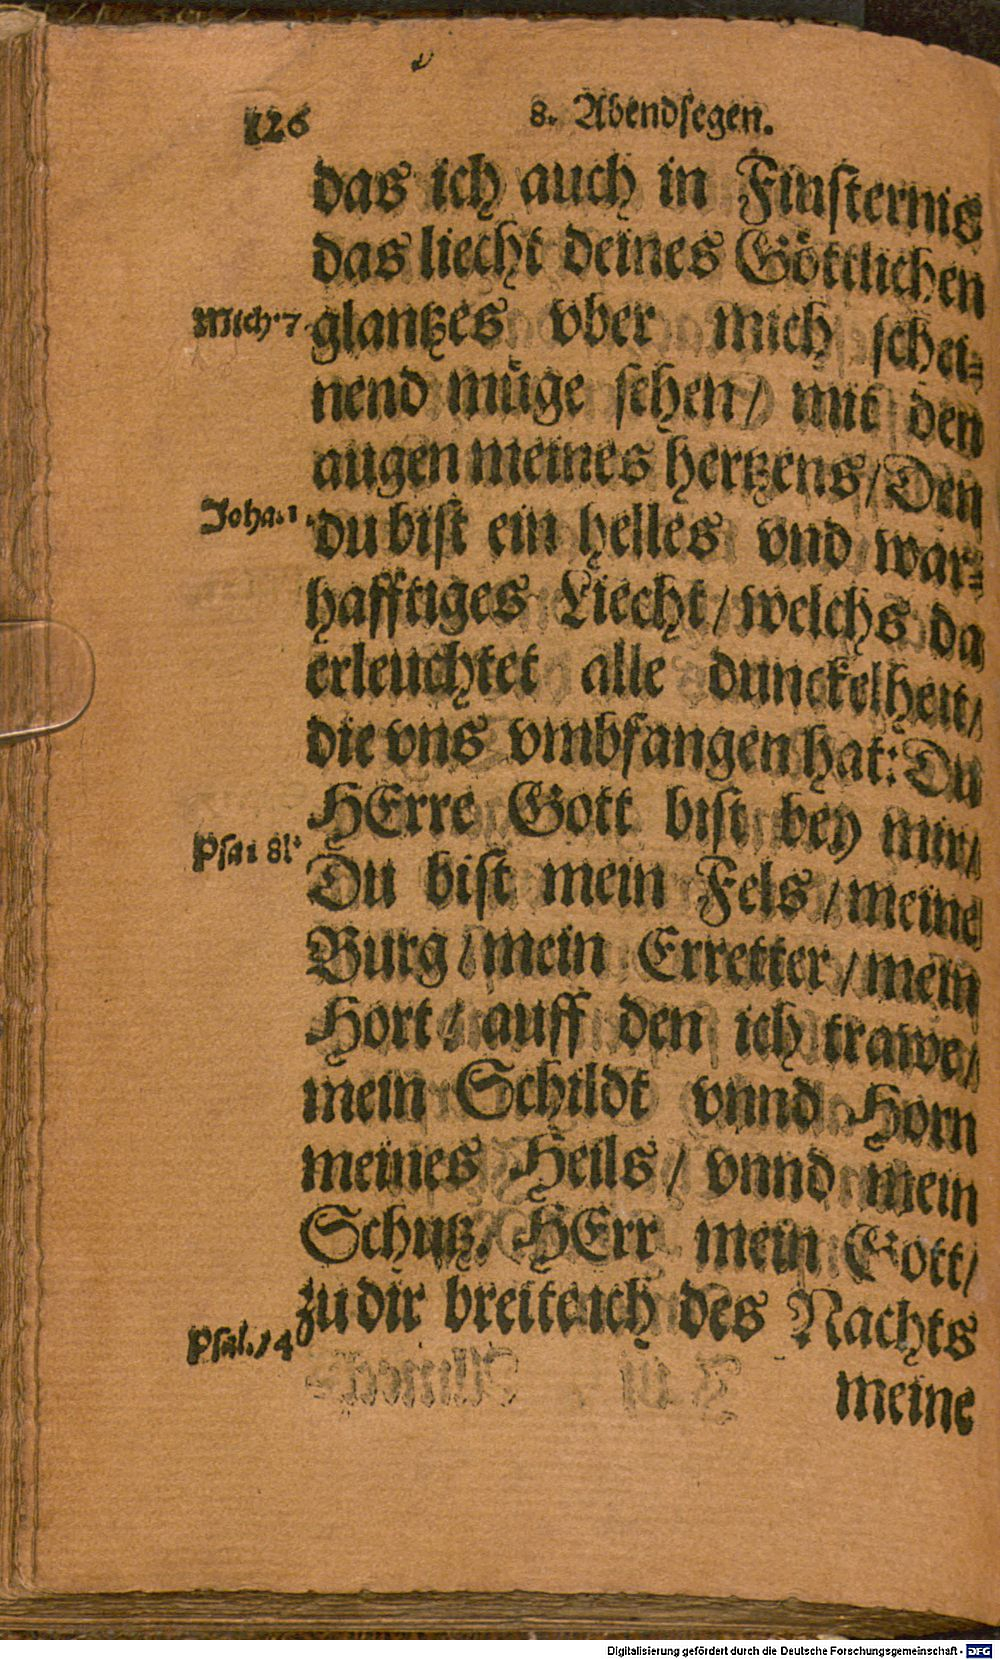 126 8. Abendsegen.
das ich auch in Finsternis
das liecht deines Göttlichen
Mich. 7. glantzes vber mich schei⸗
nend müge sehen / mit den
augen meines hertzens / Den
Joha. 1. du bist ein helles vnd war⸗
hafftiges Liecht / welchs da
erleuchtet alle dunckelheit /
die vns vmbfangen hat: Du
HErre Gott bist bey mir /
Du bist mein Fels / meine
Burg / mein Erretter / mein
Hort / auff den ich trawe /
mein Schildt vnnd Horn
meines Heils / vnnd mein
Schutz. HErr mein Gott /
zu dir breite ich des Nachts
meine
Digitalisierung gefördert durch die Deutsche Forschungsgemeinschaft - DFG